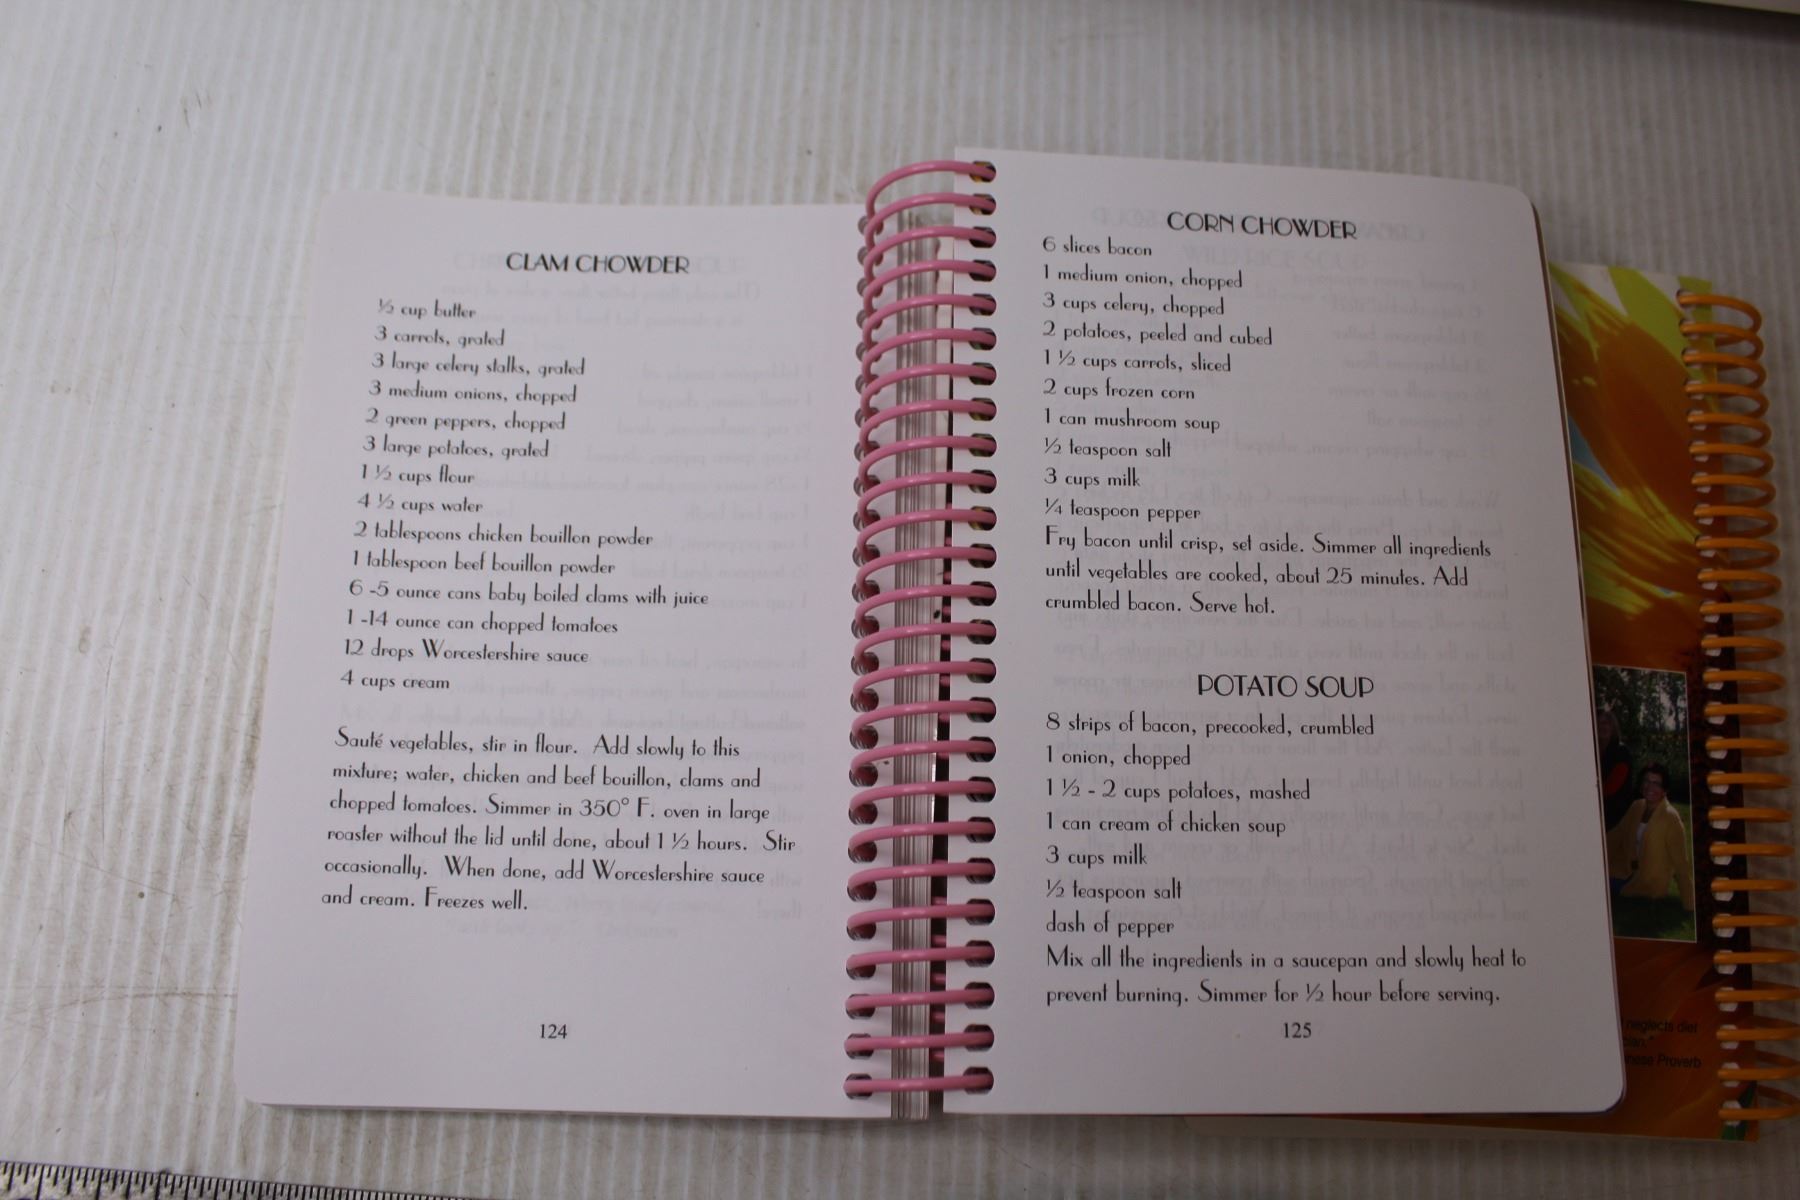 CLAM CHOWDER
½ cup butter
3 carrots, grated
3 large celery stalks, grated
3 medium onions, chopped
2 green peppers, chopped
3 large potatoes, grated
1 ½ cups flour
4 ½ cups water
2 tablespoons chicken bouillon powder
1 tablespoon beef bouillon powder
6 -5 ounce cans baby boiled clams with juice
1 -14 ounce can chopped tomatoes
12 drops Worcestershire sauce
4 cups cream
Sauté vegetables, stir in flour. Add slowly to this
mixture; water, chicken and beef bouillon, clams and
chopped tomatoes. Simmer in 350° F. oven in large
roaster without the lid until done, about 1 ½ hours. Stir
occasionally. When done, add Worcestershire sauce
and cream. Freezes well.
124
CORN CHOWDER
6 slices bacon
1 medium onion, chopped
3 cups celery, chopped
2 potatoes, peeled and cubed
1 ½ cups carrots, sliced
2 cups frozen corn
1 can mushroom soup
½ teaspoon salt
3 cups milk
¼ teaspoon pepper
Fry bacon until crisp, set aside. Simmer all ingredients
until vegetables are cooked, about 25 minutes. Add
crumbled bacon. Serve hot.
POTATO SOUP
8 strips of bacon, precooked, crumbled
1 onion, chopped
1 ½ - 2 cups potatoes, mashed
1 can cream of chicken soup
3 cups milk
½ teaspoon salt
dash of pepper
Mix all the ingredients in a saucepan and slowly heat to
prevent burning. Simmer for ½ hour before serving.
125
neglects diet
Proverb